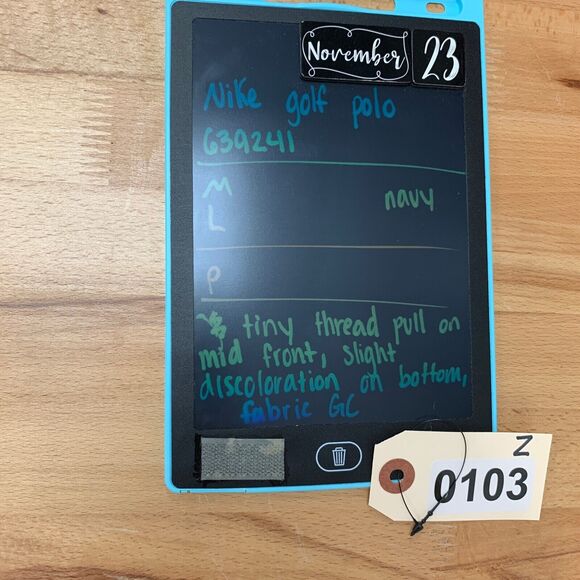 November 23
Nike golf polo
639241
M
navy
L
P
tiny thread pull on
mid front, slight
discoloration on bottom,
fabric GC
Z
0103